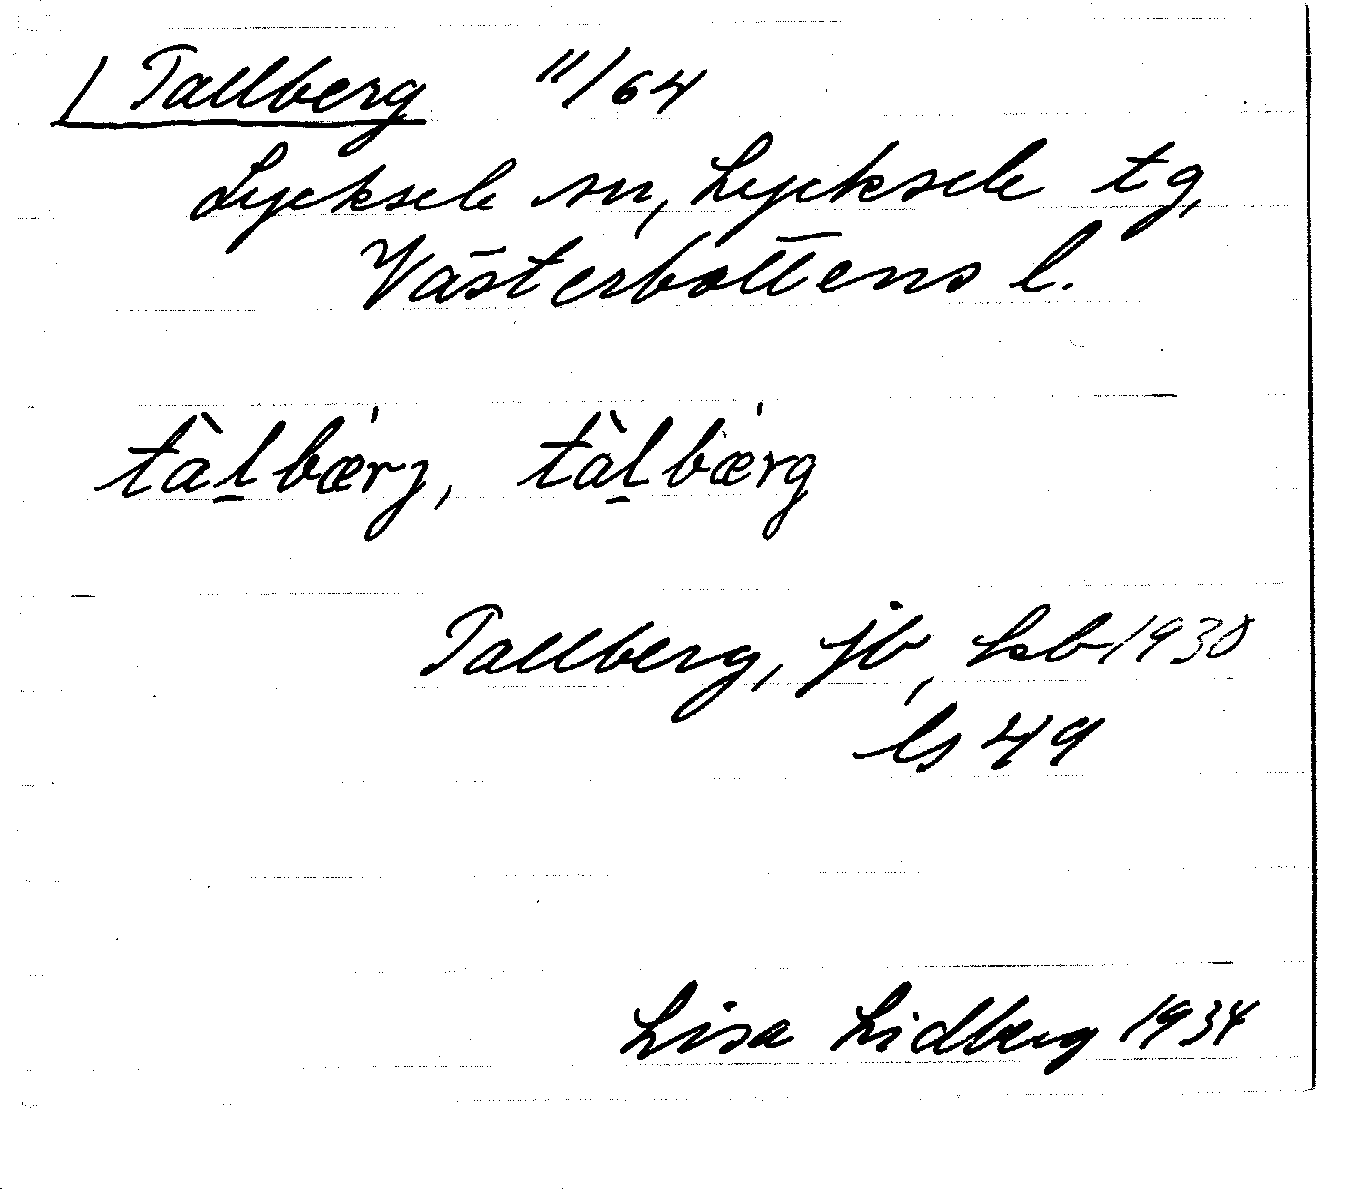 / Tallberg 11/64
Lycksele sn, Lycksele tg,
Västerbottens l.
tàl̠bǽrj, tàl̠bǽrg
Tallberg, jb, hsb 1930
ls 49
Lisa Lidberg 1934